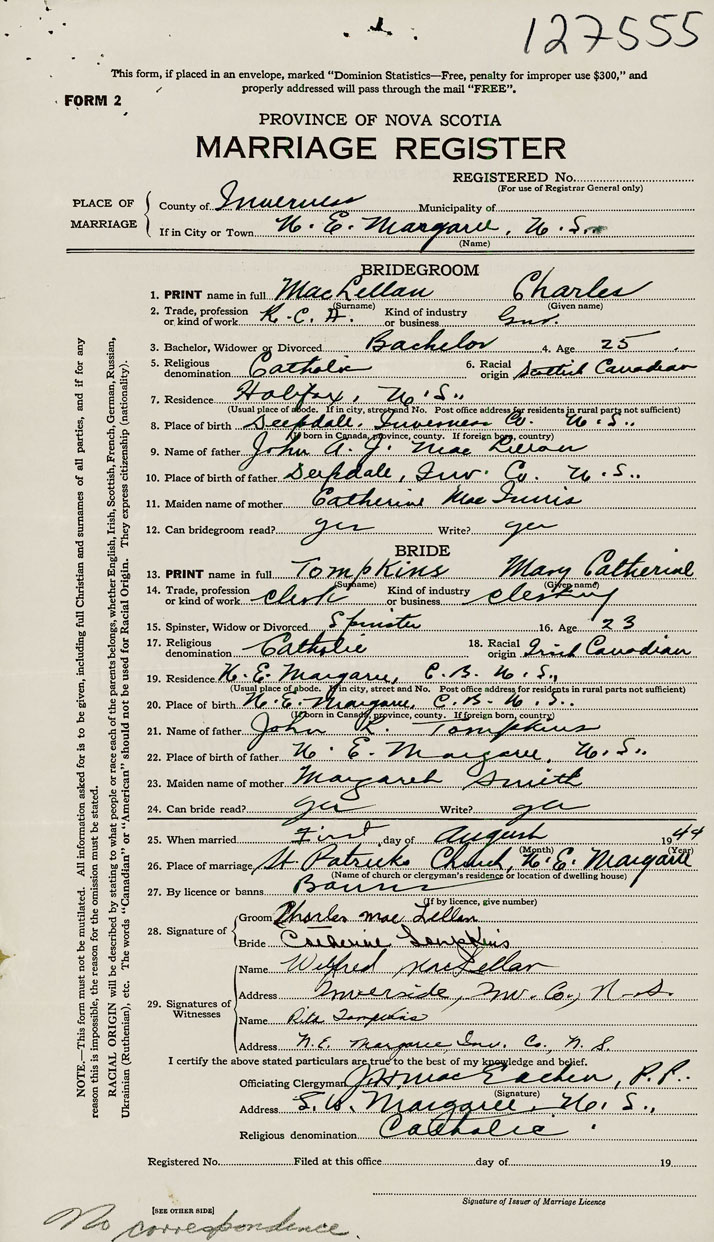 127555
This form, if placed in an envelope, marked "Dominion Statistics—Free, penalty for improper use $300," and
properly addressed will pass through the mail "FREE".
FORM 2
PROVINCE OF NOVA SCOTIA
MARRIAGE REGISTER
REGISTERED No.
(For use of Registrar General only)
PLACE OF MARRIAGE
County of Inverness Municipality of
If in City or Town N. E. Margaree, N. S.
(Name)
BRIDEGROOM
1. PRINT name in full MacLellan Charles
(Surname) (Given name)
2. Trade, profession or kind of work R.C.A. Kind of industry or business Gnr.
3. Bachelor, Widower or Divorced Bachelor 4. Age 25
5. Religious denomination Catholic 6. Racial origin Scottish Canadian
7. Residence Halifax, N.S.
(Usual place of abode. If in city, street and No. Post office address for residents in rural parts not sufficient)
8. Place of birth Deepdale, Inverness Co. N.S.
(If born in Canada, province, county. If foreign born, country)
9. Name of father John A. J. MacLellan
10. Place of birth of father Deepdale, Inv. Co. N.S.
11. Maiden name of mother Catherine MacInnis
12. Can bridegroom read? yes Write? yes
BRIDE
13. PRINT name in full Tompkins Mary Catherine
(Surname) (Given name)
14. Trade, profession or kind of work clerk Kind of industry or business clerking
15. Spinster, Widow or Divorced Spinster 16. Age 23
17. Religious denomination Catholic 18. Racial origin Irish Canadian
19. Residence N. E. Margaree, C. B. N. S.
(Usual place of abode. If in city, street and No. Post office address for residents in rural parts not sufficient)
20. Place of birth N. E. Margaree, C. B. N. S.
(If born in Canada, province, county. If foreign born, country)
21. Name of father John R. Tompkins
22. Place of birth of father N. E. Margaree, N. S.
23. Maiden name of mother Margaret Smith
24. Can bride read? yes Write? yes
25. When married First day of August 1944
(Month) (Year)
26. Place of marriage St. Patricks Church, N. E. Margaree
(Name of church or clergyman's residence or location of dwelling house)
27. By licence or banns Banns
(If by licence, give number)
28. Signature of
Groom Charles MacLellan
Bride Catherine Tompkins
29. Signatures of Witnesses
Name Wilfred MacLellan
Address Inverside, Inv. Co., N.S.
Name Rita Tompkins
Address N.E. Margaree Inv. Co., N. S.
I certify the above stated particulars are true to the best of my knowledge and belief.
Officiating Clergyman MacEachen, P.P.
(Signature)
Address S. W. Margaree, N. S.
Religious denomination Catholic
Registered No. Filed at this office day of 19
Signature of Issuer of Marriage Licence
[SEE OTHER SIDE]
No correspondence.
NOTE.—This form must not be mutilated. All information asked for is to be given, including full Christian and surnames of all parties, and if for any
reason this is impossible, the reason for the omission must be stated.
RACIAL ORIGIN will be described by stating to what people or race each of the parents belongs, whether English, Irish, Scottish, French, German, Russian,
Ukrainian (Ruthenian), etc. The words "Canadian" or "American" should not be used for Racial Origin. They express citizenship (nationality).